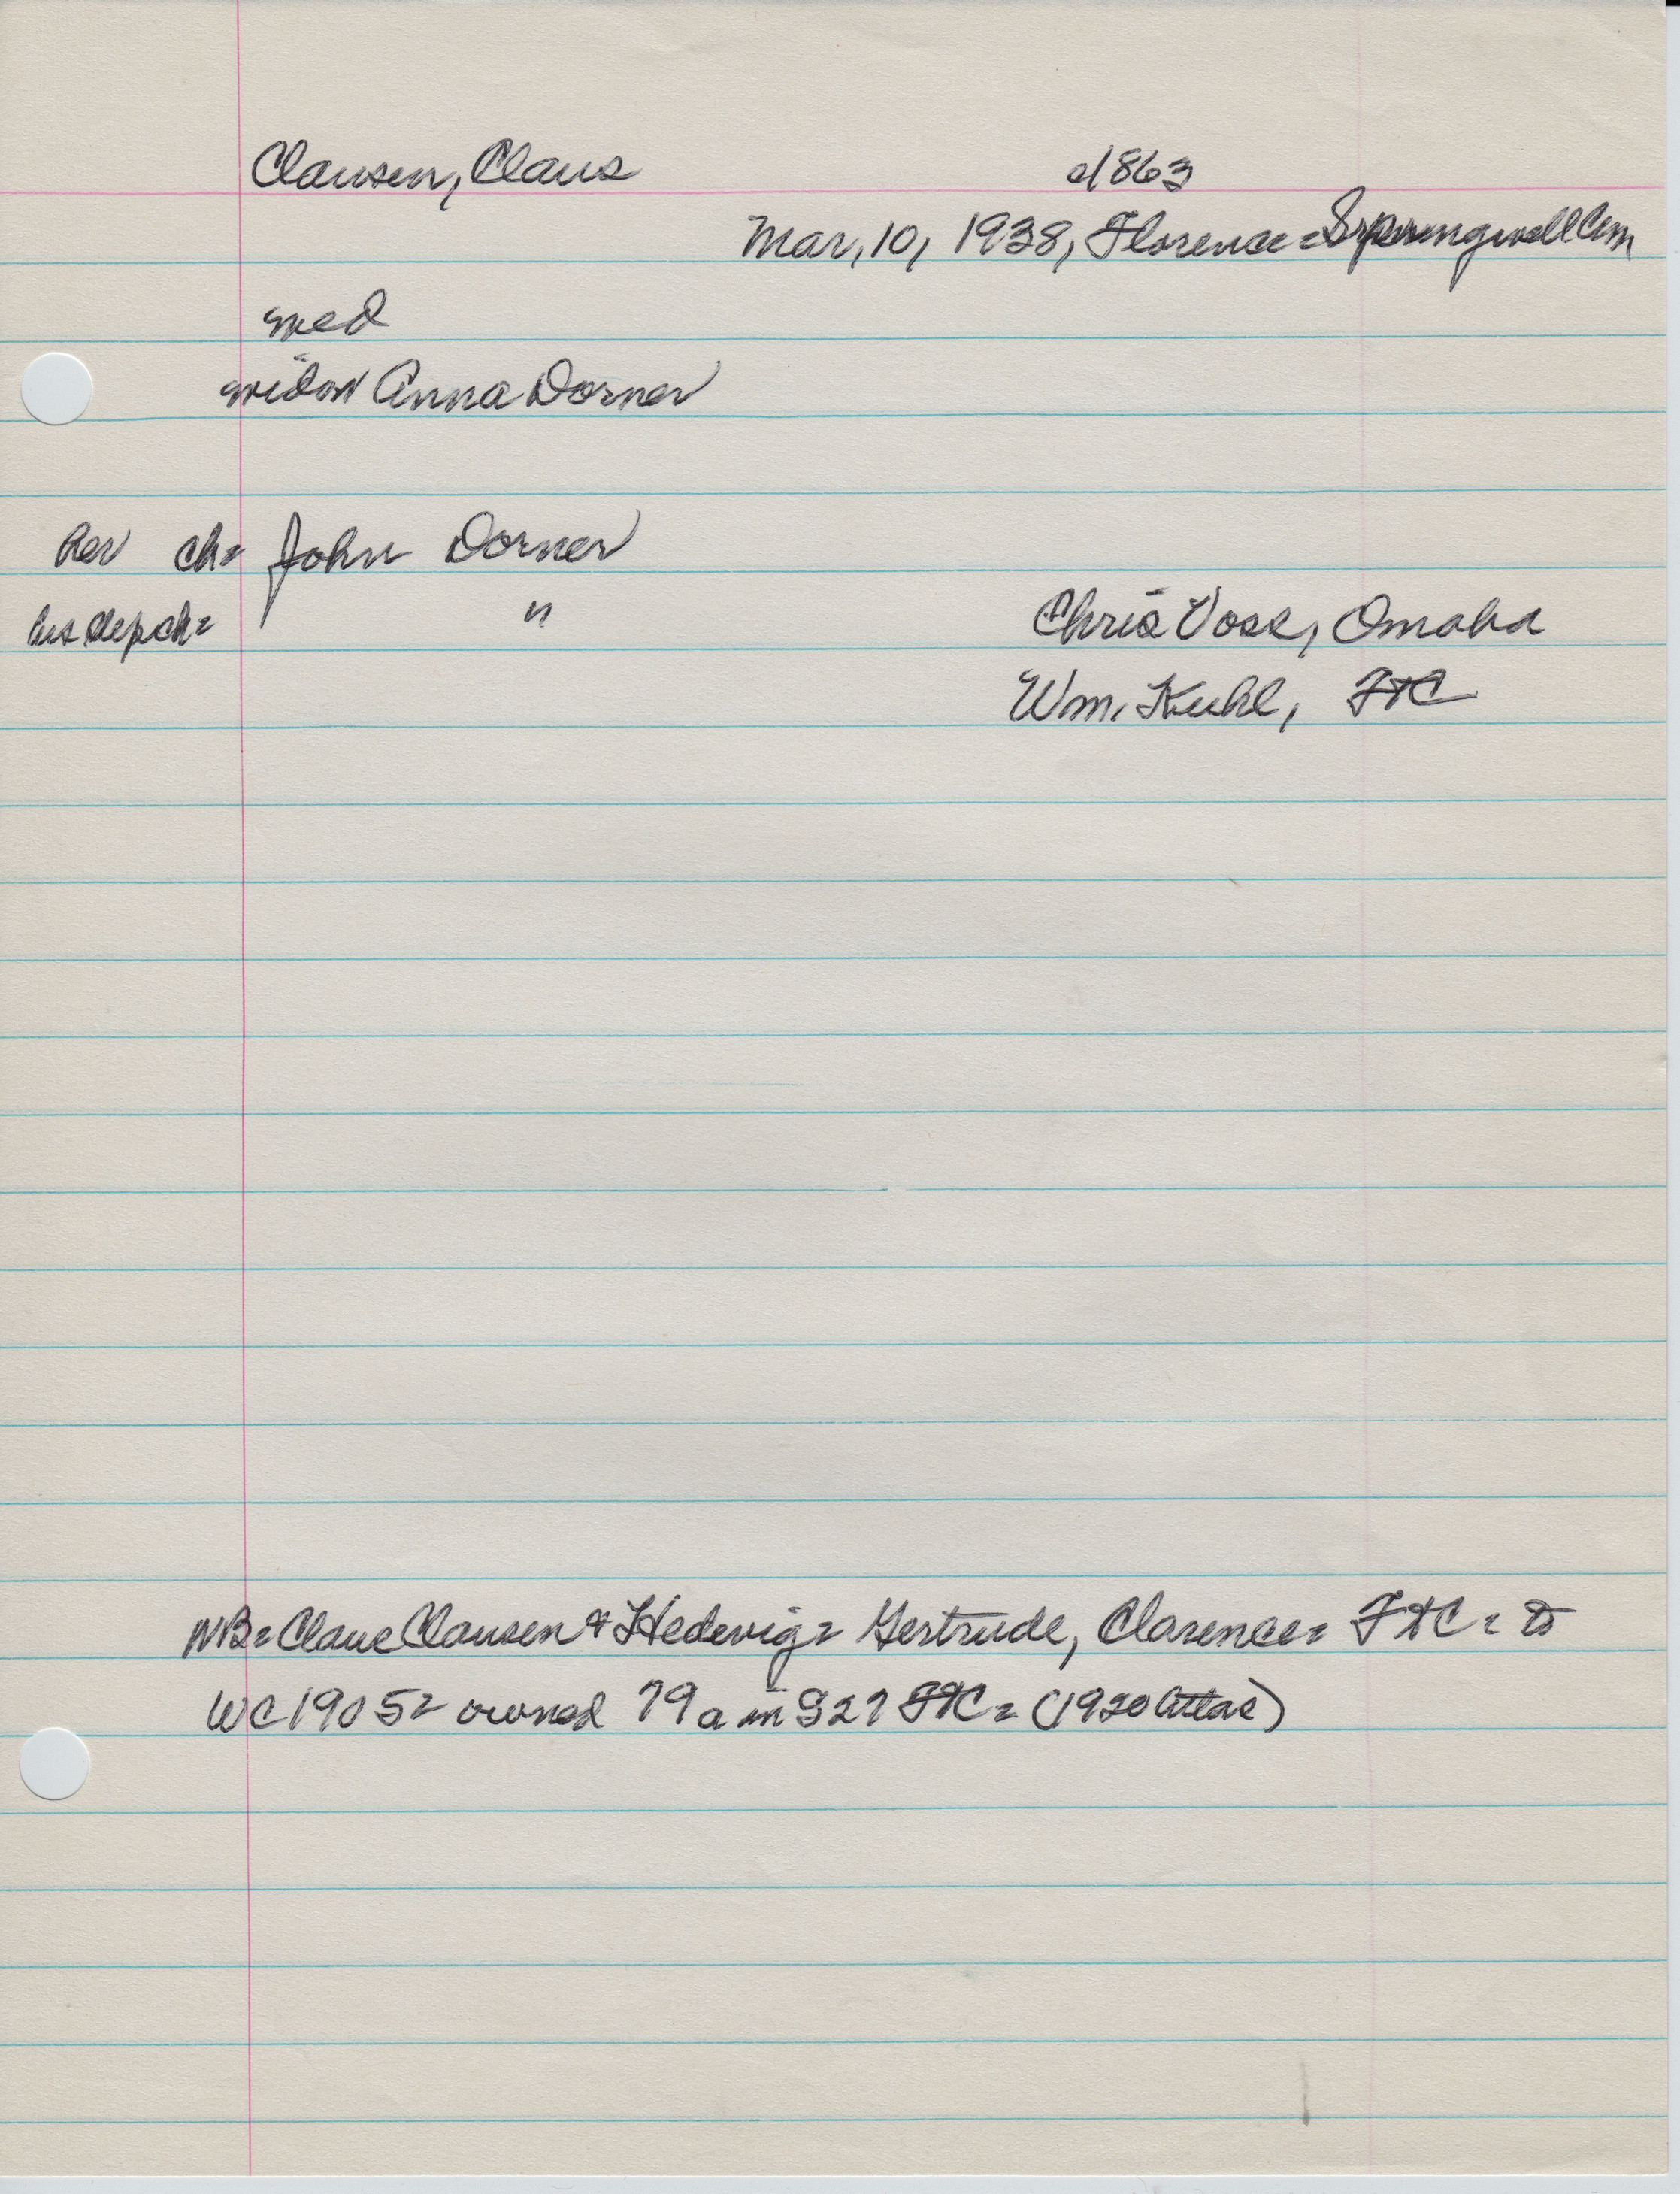 Clausen, Claus c1863
Mar, 10, 1938, Florence = Springwell Cem
wed
widow Anna Dorner
her ch= John Dorner
his step ch= " Chris Voss, Omaha
Wm. Kuhl, FTC
NB= Claus Clausen & Hedevig= Gertrude, Clarence= FTC = to
WC 1905= owned 79 a in S27 FTC = (1920 Atlas)